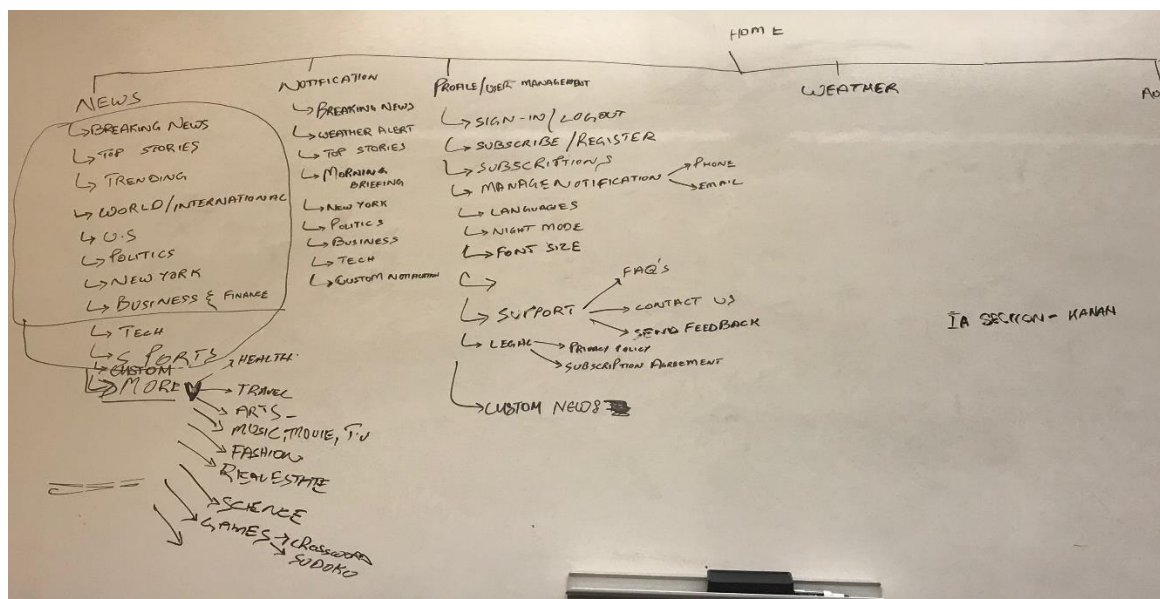 HOME
NEWS
BREAKING NEWS
TOP STORIES
TRENDING
WORLD/INTERNATIONAL
U.S
POLITICS
NEW YORK
BUSINESS & FINANCE
TECH
SPORTS
CUSTOM
MORE
HEALTH
TRAVEL
ARTS
MUSIC, MOVIE, T.V
FASHION
REAL ESTATE
SCIENCE
GAMES
CROSSWORD
SUDOKO
NOTIFICATION
BREAKING NEWS
WEATHER ALERT
TOP STORIES
MORNING
BRIEFING
NEW YORK
POLITICS
BUSINESS
TECH
CUSTOM NOTIFICATION
PROFILE/USER MANAGEMENT
SIGN-IN/LOGOUT
SUBSCRIBE/REGISTER
SUBSCRIPTIONS
MANAGE NOTIFICATION
PHONE
EMAIL
LANGUAGES
NIGHT MODE
FONT SIZE
SUPPORT
FAQ'S
CONTACT US
SEND FEEDBACK
LEGAL
PRIVACY POLICY
SUBSCRIPTION AGREEMENT
CUSTOM NEWS
WEATHER
IA SECTION - KANAN